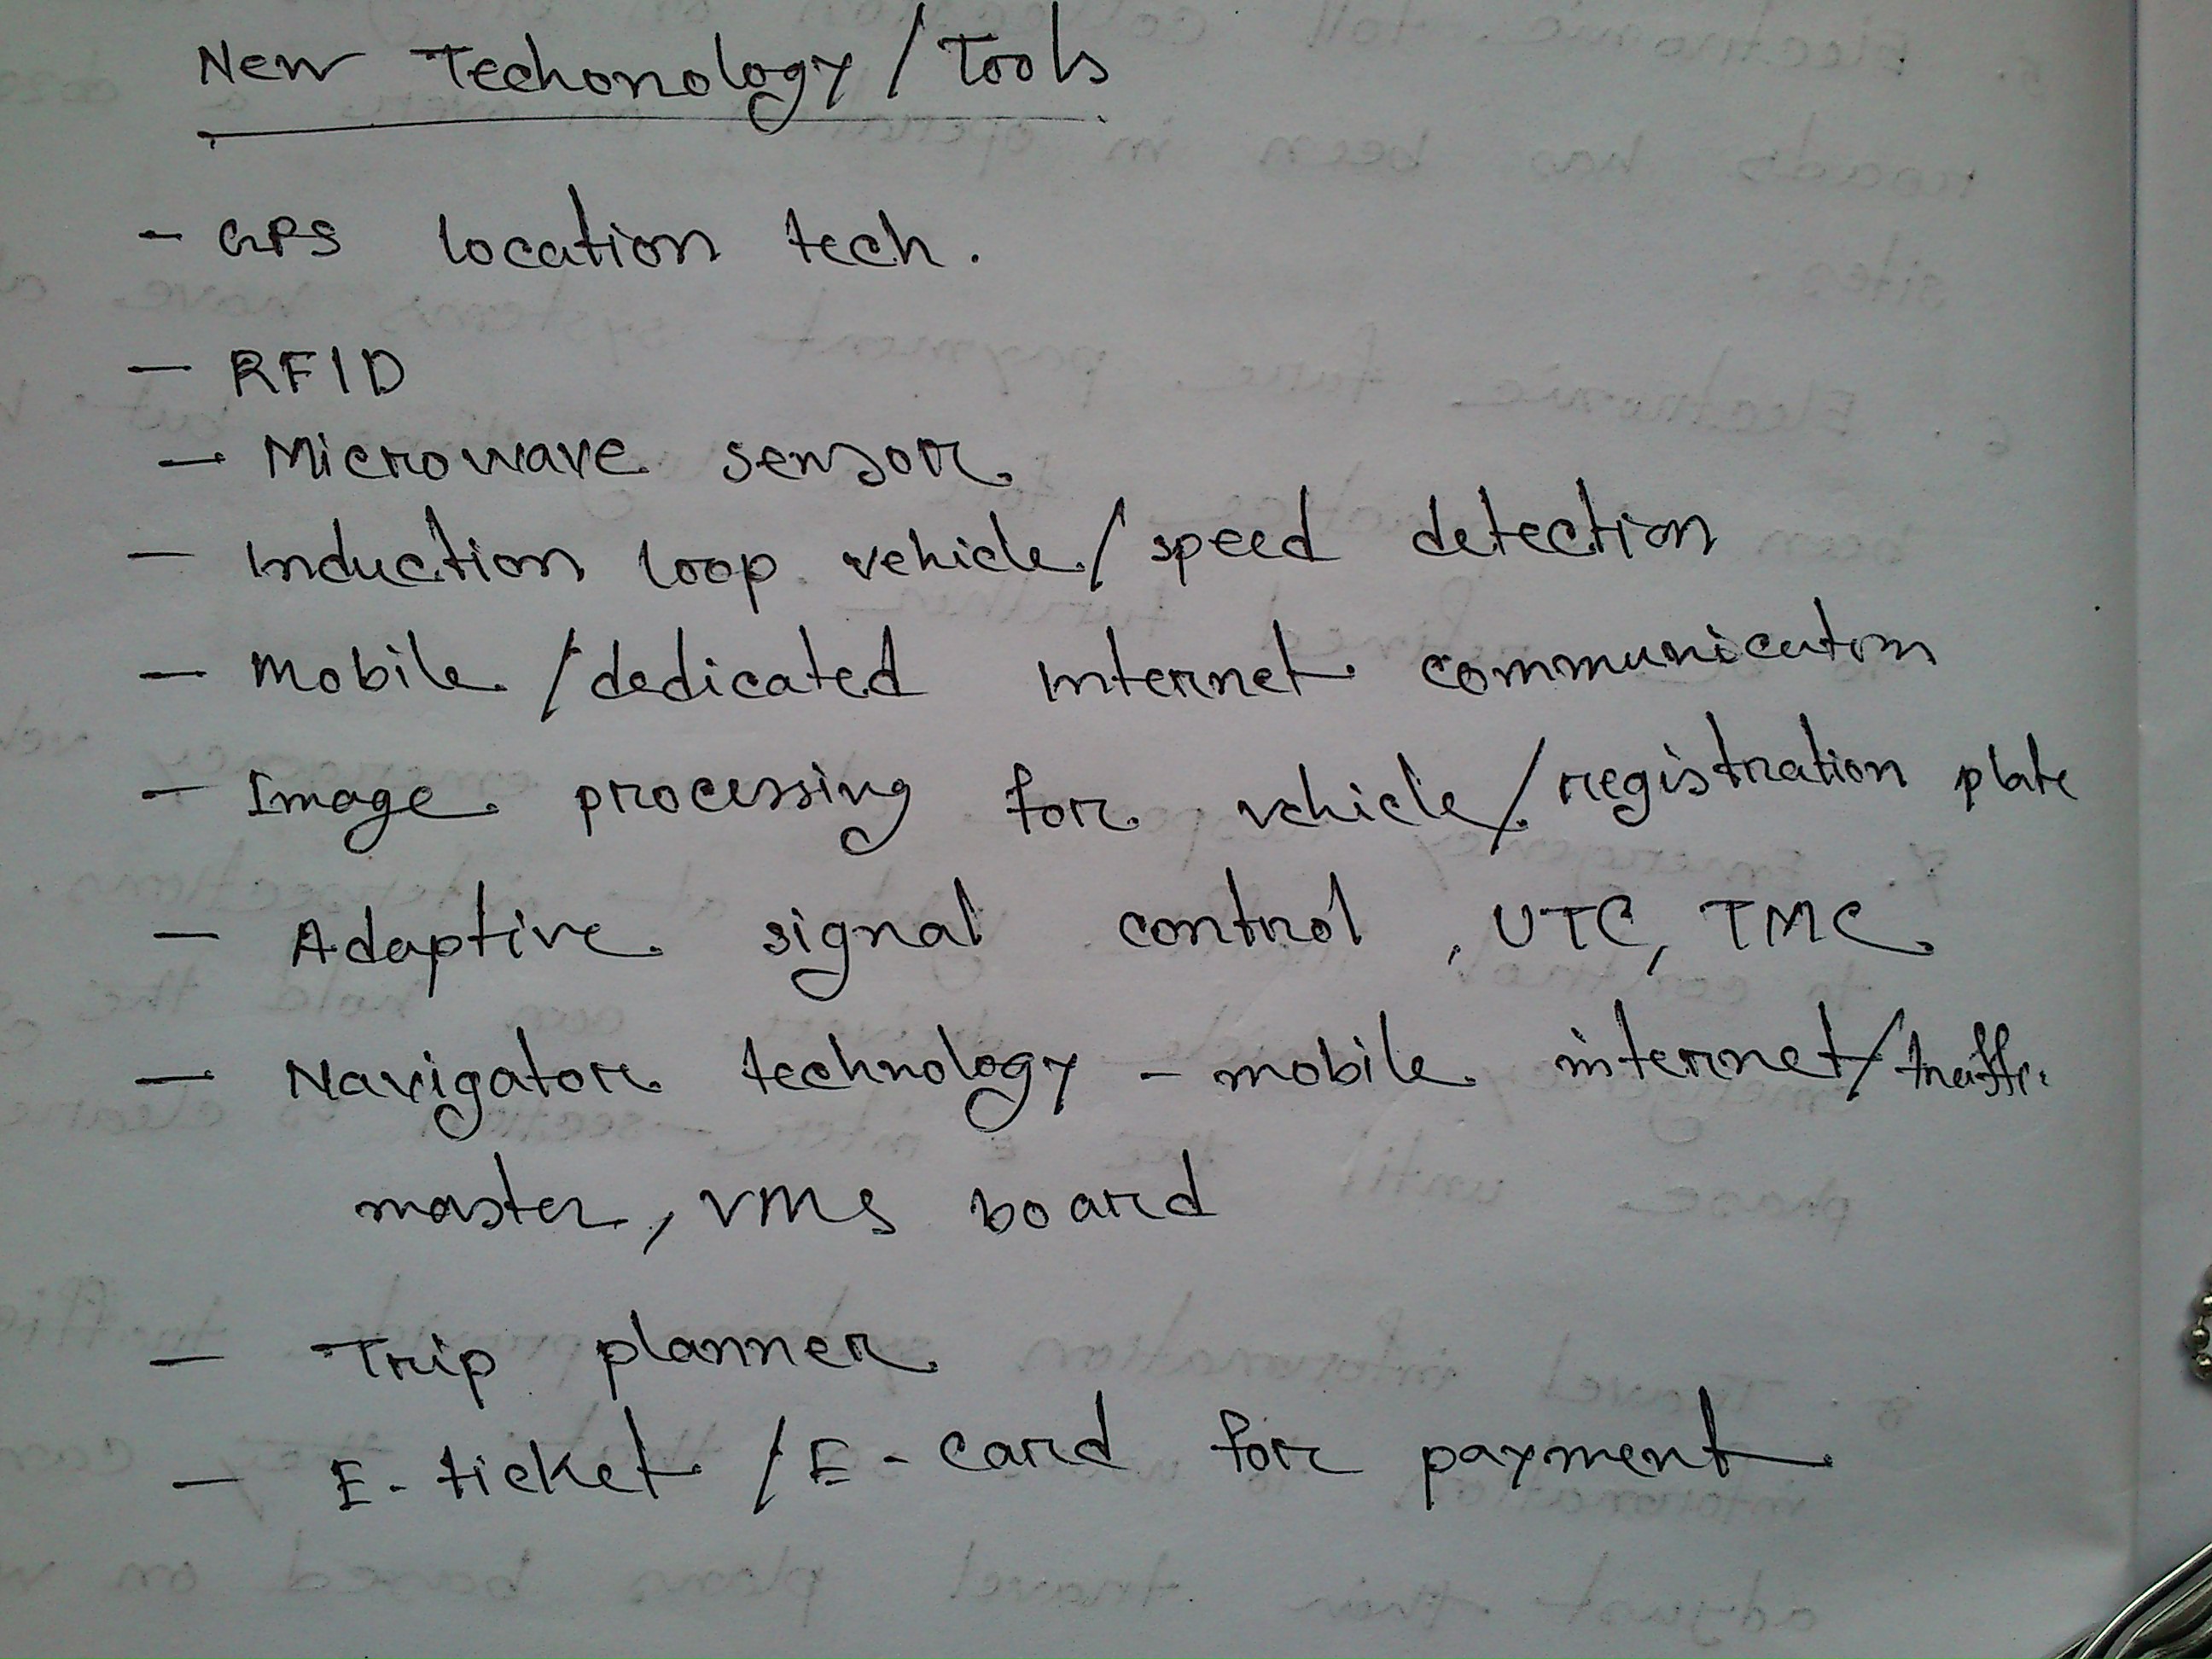 New Techonology/Tools
- GPS location tech.
- RFID
- Microwave sensor
- Induction loop vehicle/speed detection
- Mobile/dedicated internet communication
- Image processing for vehicle/registration plate
- Adaptive signal control, UTC, TMC
- Navigator technology - mobile internet/traffic
master, VMS board
- Trip planner
- E-ticket/E-card for payment